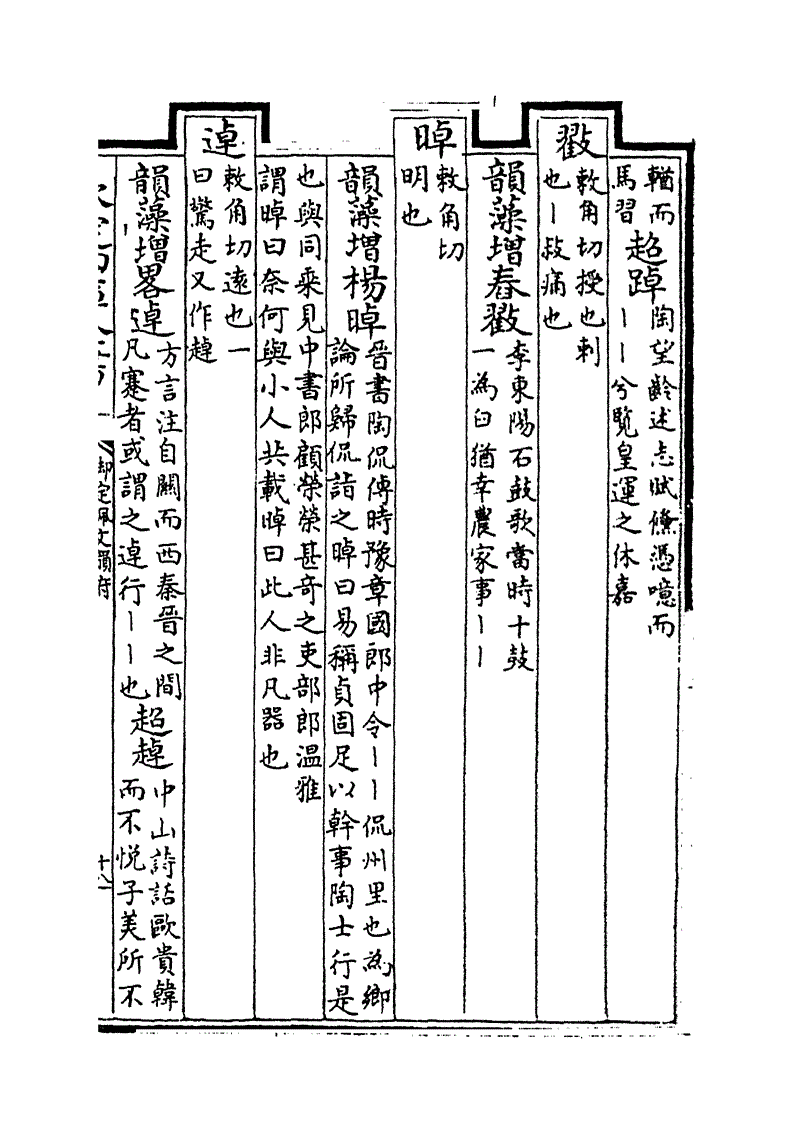 輶而
馬習
超踔
陶望齡述志賦儵憑噫而
丨丨兮覽皇運之休嘉
㲉
敕角切授也刺
也丨敊痛也
韻藻增舂㲉
李東陽石鼓歌當時十鼓
一為臼猶幸農家事丨丨
晫
敕角切
明也
韻藻增楊晫
晉書陶侃傳時豫章國郎中令丨丨侃州里也為鄉
論所歸侃詣之晫曰易稱貞固足以幹事陶士行是
也與同乘見中書郎顧榮榮甚奇之吏部郎溫雅
謂晫曰奈何與小人共載晫曰此人非凡器也
逴
敕角切遠也一
曰驚走又作趠
韻藻增畧逴
方言注自關而西秦晉之間
凡蹇者或謂之逴行丨丨也
超趠
中山詩話歐貴韓
而不悅子美所不
御定佩文韻府
十八